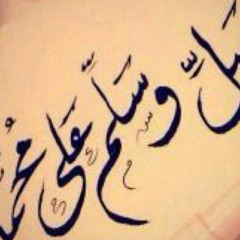 صلِّ وسلِّم على محمد